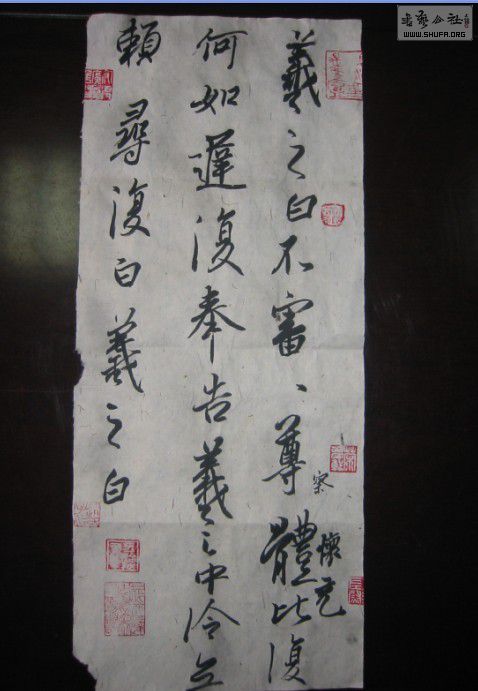 羲之白不審、尊體比復
察
懷充
何如遲復奉告羲之中冷無
賴尋復白羲之白
書藝公社
WWW.SHUFA.ORG